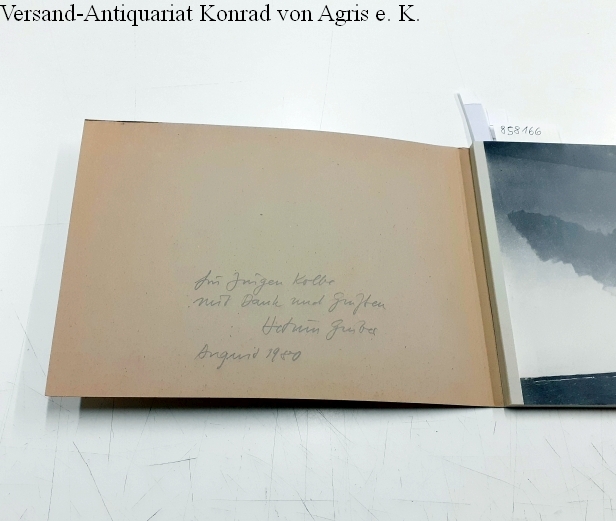 Versand-Antiquariat Konrad von Agris e. K.
858166
für Jürgen Kolbe
mit Dank und Grüßen
Hetum Gruber
August 1980